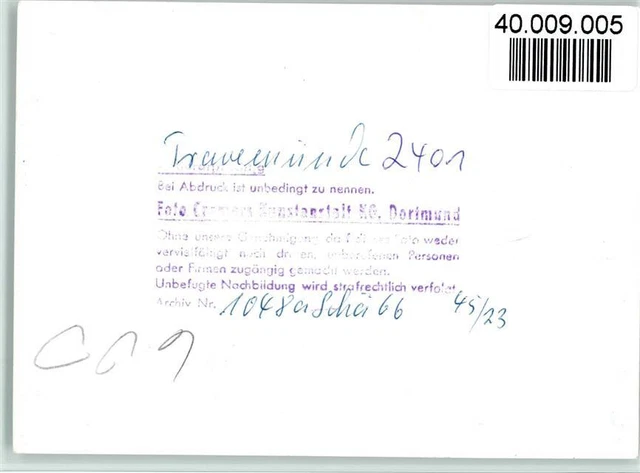 40.009.005
Travemünde 2401
Bei Abdruck ist unbedingt zu nennen.
Foto Cramers Kunstanstalt KG. Dortmund
Ohne unsere Genehmigung darf dieses Foto weder
vervielfältigt noch dritten, unberufenen Personen
oder Firmen zugängig gemacht werden.
Unbefugte Nachbildung wird strafrechtlich verfolgt.
Archiv Nr. 1048a Schö 66 45/23